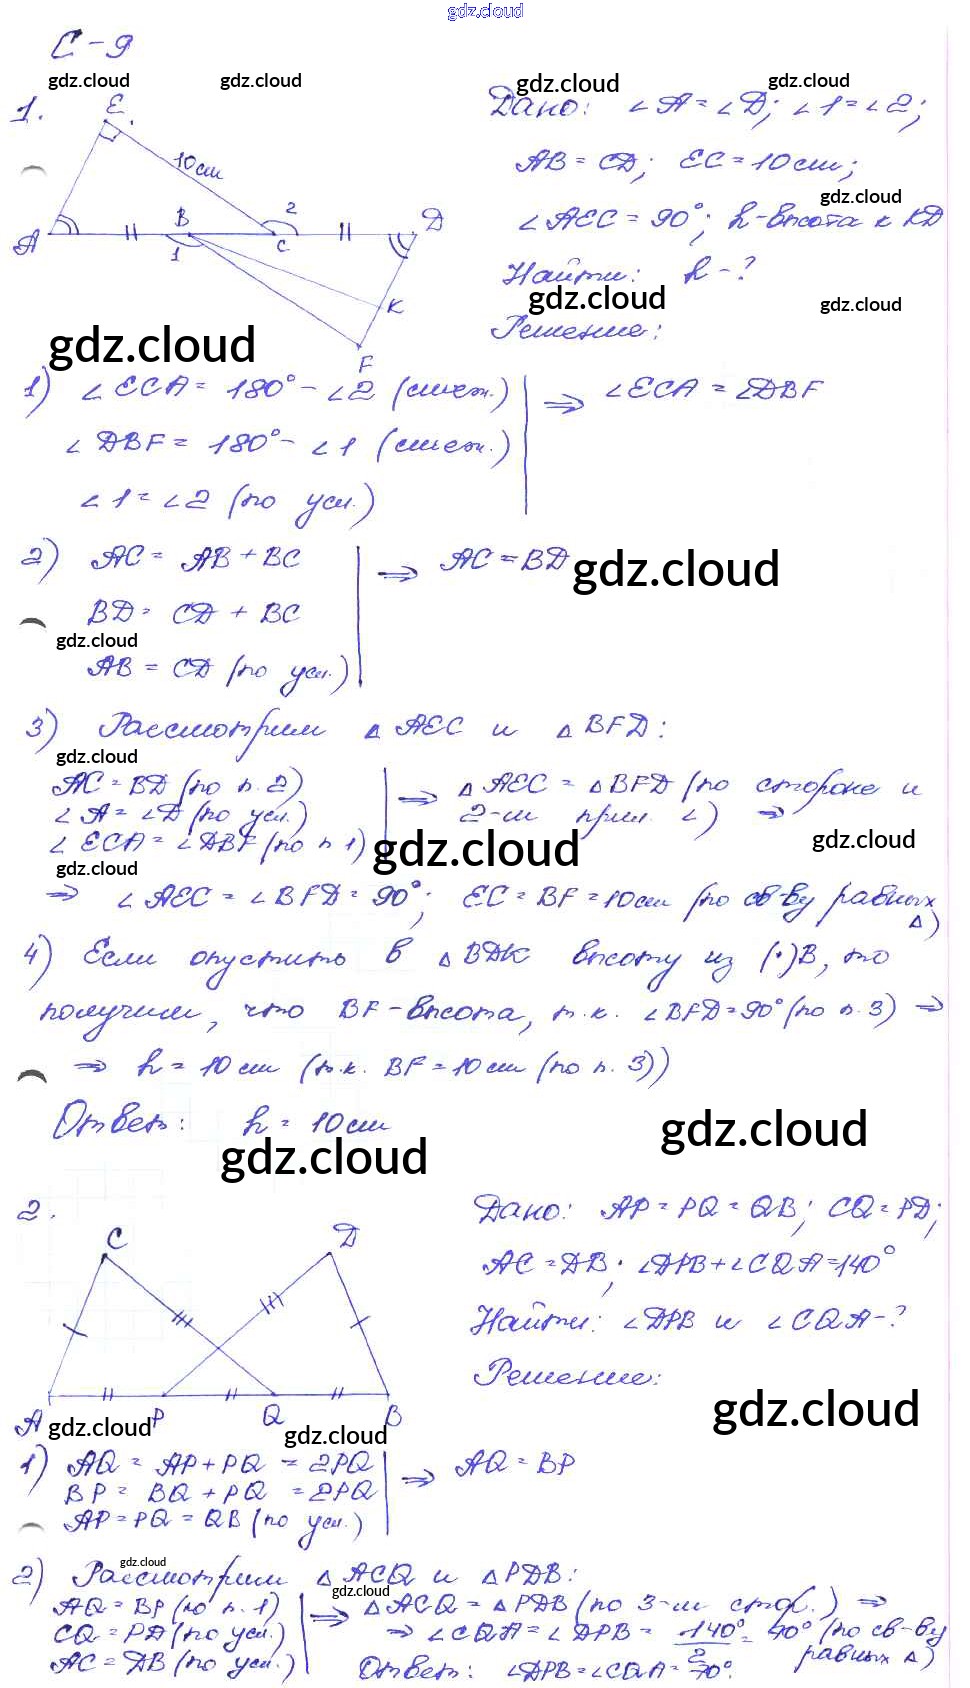 gdz.cloud
С-9
gdz.cloud gdz.cloud gdz.cloud gdz.cloud
1.
E
10 см
A B 2 C D
1
K
F
Дано: ∠A = ∠D; ∠1 = ∠2;
AB = CD; EC = 10 см;
gdz.cloud
∠AEC = 90°; h - высота к KD
Найти: h - ?
gdz.cloud gdz.cloud
Решение:
gdz.cloud
1) ∠ECA = 180° - ∠2 (смеж.) ⇒ ∠ECA = ∠DBF
∠DBF = 180° - ∠1 (смеж.)
∠1 = ∠2 (по усл.)
2) AC = AB + BC ⇒ AC = BD
gdz.cloud
BD = CD + BC
gdz.cloud
AB = CD (по усл.)
3) Рассмотрим △AEC и △BFD:
gdz.cloud
AC = BD (по п. 2) ⇒ △AEC = △BFD (по стороне и
∠A = ∠D (по усл.) 2-м прил. ∠) ⇒
∠ECA = ∠DBF (по п 1)
gdz.cloud gdz.cloud
gdz.cloud
⇒ ∠AEC = ∠BFD = 90°; EC = BF = 10 см (по св-ву равных △)
4) Если опустить в △BDK высоту из (·)B, то
получим, что BF - высота, т.к. ∠BFD = 90° (по п. 3) ⇒
⇒ h = 10 см (т.к. BF = 10 см (по п. 3))
Ответ: h = 10 см
gdz.cloud gdz.cloud
2.
C D
A P Q B
Дано: AP = PQ = QB; CQ = PD;
AC = DB; ∠DPB + ∠CQA = 140°
Найти: ∠DPB и ∠CQA - ?
Решение:
gdz.cloud
gdz.cloud gdz.cloud
1) AQ = AP + PQ = 2PQ ⇒ AQ = BP
BP = BQ + PQ = 2PQ
AP = PQ = QB (по усл.)
gdz.cloud
2) Рассмотрим △ACQ и △PDB:
gdz.cloud
AQ = BP (по п. 1) ⇒ △ACQ = △PDB (по 3-м стор.) ⇒
CQ = PD (по усл.) ⇒ ∠CQA = ∠DPB = 140°/2 = 70° (по св-ву равных △)
AC = DB (по усл.) Ответ: ∠DPB = ∠CQA = 70°.